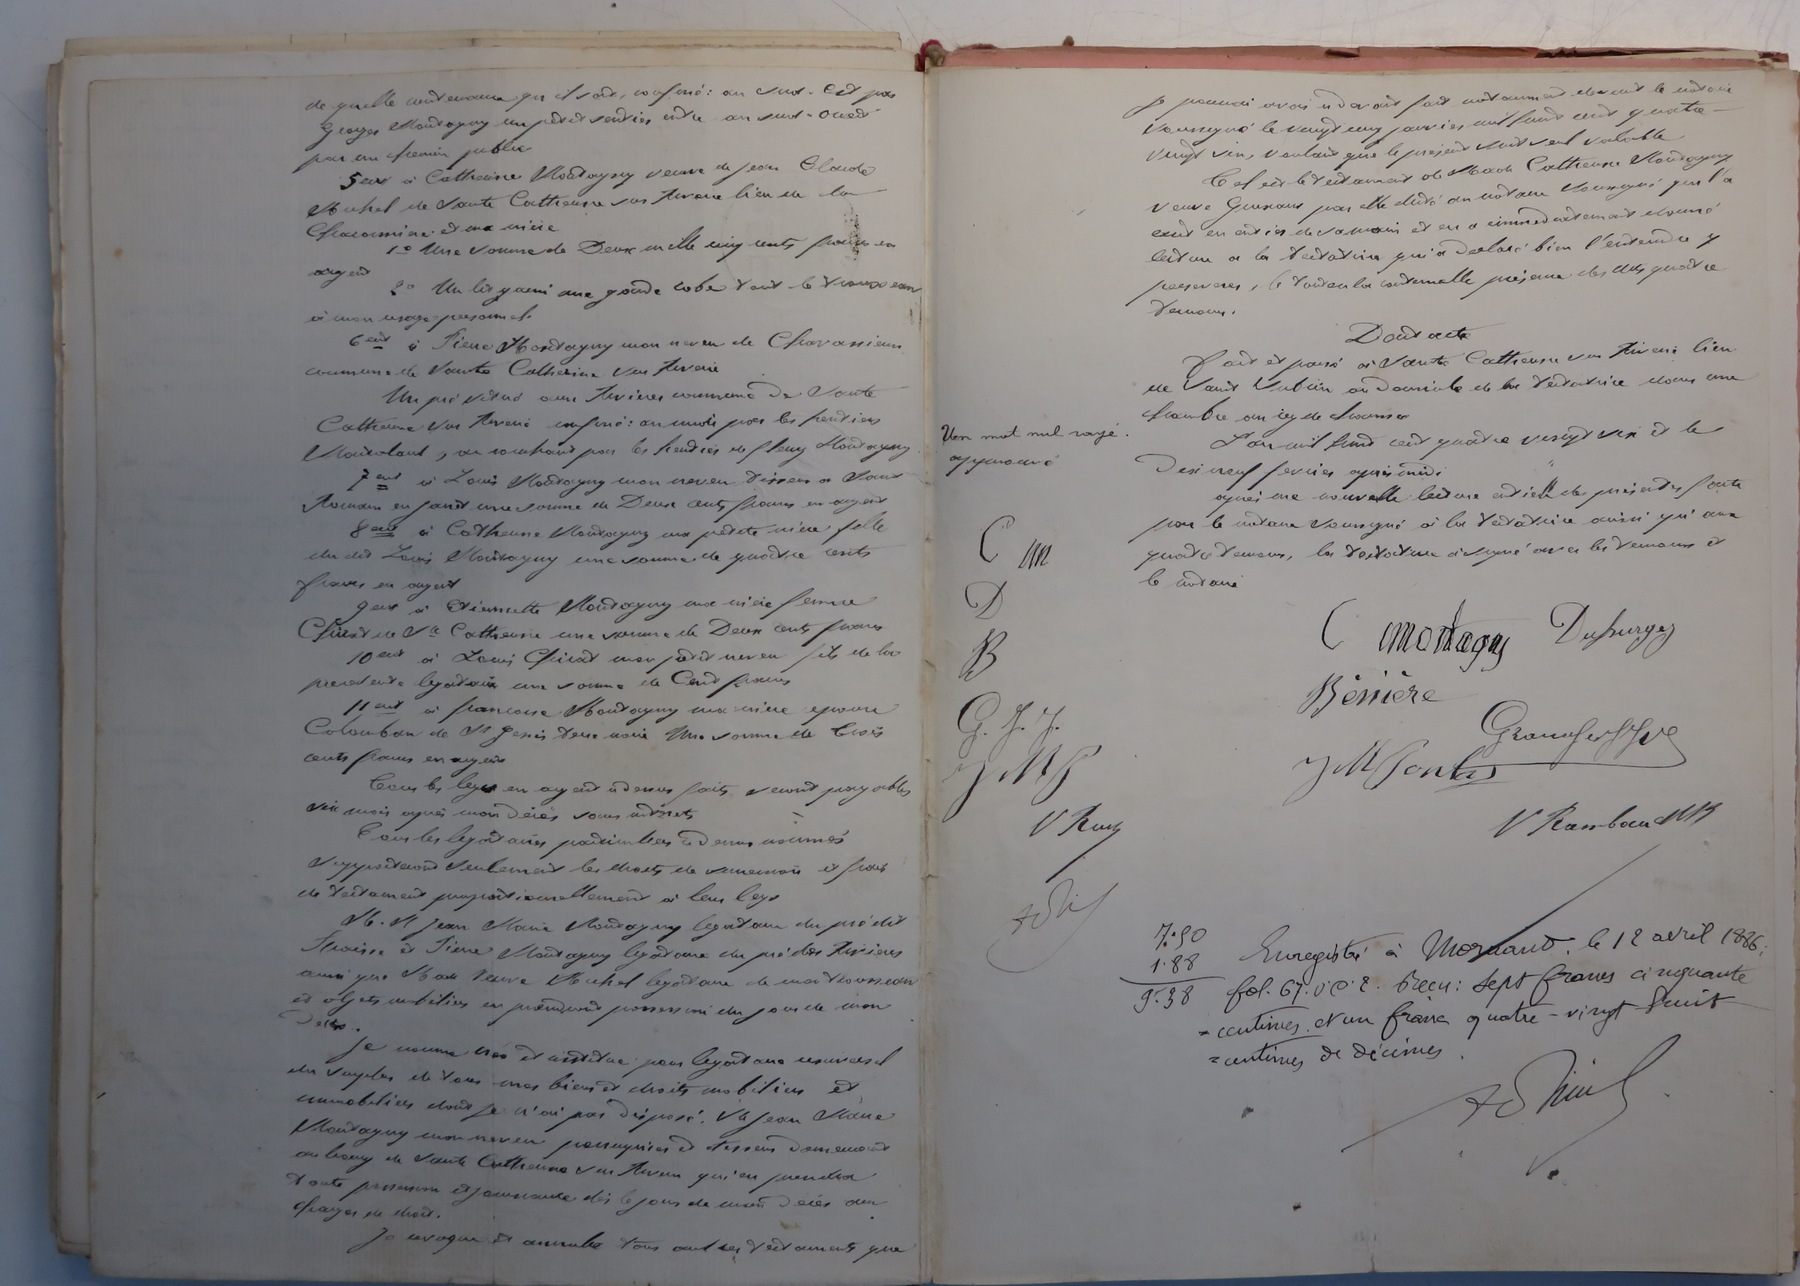 de quelle contenance qu'il soit, confiné: au sud-est par
Georges Montagny un petit sentier entre au sud-ouest
par un chemin public
5ent à Catherine Montagny veuve de Jean Claude
Michel de Sainte Catherine sur Riverie lieu de la
et ma nièce
1° Une somme de Deux mille cinq cents francs en
argent
2° Un lit garni une garde robe tout le trousseau
à mon usage personnel.
6ent à Pierre Montagny mon neveu de Chavassieux
commune de Sainte Catherine sur Riverie
Un pré situé aux Rivières commune de Sainte
Catherine sur Riverie confiné: au midi par les héritiers
au couchant par les héritiers de Montagny
7ent à Louis Montagny mon neveu tisseur à Saint
Romain en Jarêt une somme de Deux cents francs en argent
8ent à Catherine Montagny ma petite nièce fille
du dit Louis Montagny une somme de quatre cents
francs en argent
9ent à Etiennette Montagny ma nièce femme
Chirat de Ste Catherine une somme de Deux cents francs
10ent à Louis Chirat mon petit neveu fils de la
précédente légataire une somme de Cent francs
11ent à françoise Montagny ma nièce épouse
Colomban de St Genis Terre noire Une somme de trois
cents francs en argent
Tous les legs en argent ci dessus faits seront payables
six mois après mon décès sans intérêts
Tous les légataires particuliers ci dessus nommés
supporteront seulement les droits de succession et frais
de testament proportionnellement à leur legs
M. M Jean Marie Montagny légataire du pré dit
et Pierre Montagny légataire du pré des Rivières
ainsi que Made Veuve Michel légataire de mon trousseau
et objets mobiliers en prendront possession du jour de mon
Décès.
Je nomme crée et institue pour légataire universel
du surplus de tous mes biens et droits mobiliers et
immobiliers dont je n'ai pas disposé, M Jean Marie
Montagny mon neveu et tisseur demeurant
au bourg de Sainte Catherine sur Riverie qui en prendra
toute possession et jouissance dès le jour de mon décès aux
charges de droit.
Je révoque et annule tous autres testaments que
je pourrai avoir ci devant fait notamment devant le notaire
soussigné le vingt cinq janvier mil huit cent quatre-
vingt six, voulant que le présent soit seul valable
Tel est le testament de Made Catherine Montagny
veuve par elle dicté au notaire soussigné qui l'a
écrit en entier de sa main et en a immédiatement donné
lecture à la testatrice qui a déclaré bien l'entendre y
persévérer, le tout en la continuelle présence des dits quatre
témoins.
Dont acte
fait et passé à Sainte Catherine sur Riverie lieu
de Saint au domicile de la testatrice dans une
chambre au rez de chaussée
L'an mil huit cent quatre vingt six et le
Dix neuf février après midi
après une nouvelle lecture entière des présentes faite
par le notaire soussigné à la testatrice ainsi qu'aux
quatre témoins, la testatrice a signé avec les témoins et
le notaire
Un mot nul rayé.
approuvé
C m
D
B
G. J. J.
J M J
V Ray
C montagny Duburgey
Bénière
J M
V Rambaud
7.50
1.88
9.38
Enregistré à Mornant le 12 avril 1886,
fol. 67. v° c. 2. Reçu: sept francs cinquante
=centimes et un franc quatre-vingt huit
=centimes de décimes.